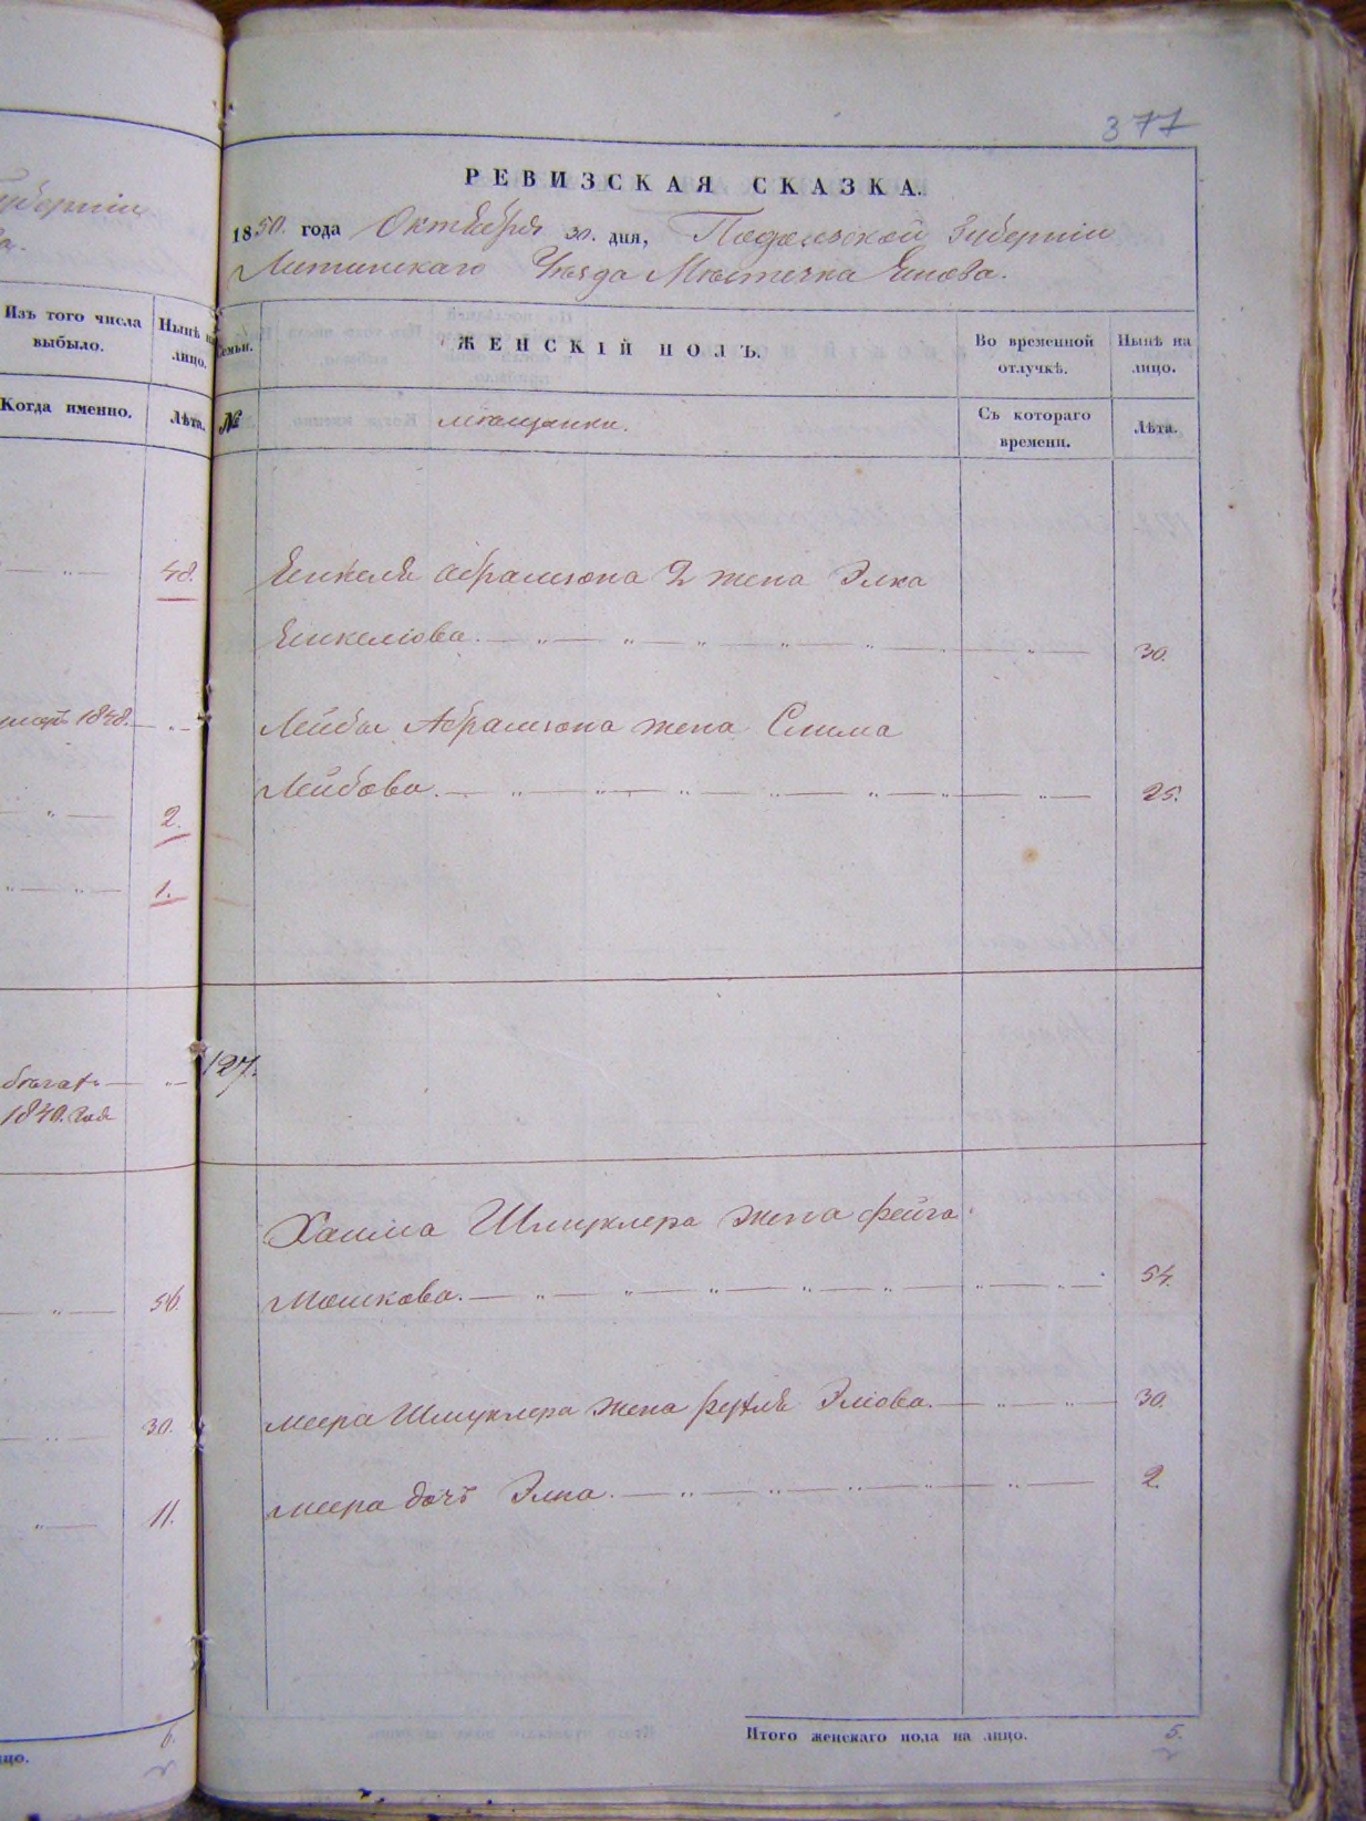 377
губерніи
а.
Изъ того числа
выбыло.
Нынѣ на
лицо.
Когда именно.
Лѣта.
48.
1848.
2.
1.
1840. года
56.
30.
11.
6.
РЕВИЗСКАЯ СКАЗКА.
1850. года Октября 30. дня, Подольской Губерніи
Литинскаго Уѣзда Мѣстечка Янова.
Семьи.
ЖЕНСКІЙ ПОЛЪ.
Во временной
отлучкѣ.
Нынѣ на
лицо.
№
мѣщанки.
Съ котораго
времени.
Лѣта.
Янкеля Абрамзона 2 жена Элка
Янкеліова. 30.
Лейбы Абрамзона жена Слима
Лейбова. 25.
127.
Хаима Шмуклера жена Фейга
Мошкова. 54.
Меера Шмуклера жена Рухля Эліова. 30.
Меера дочь Элка. 2.
Итого женскаго пола на лицо. 5.